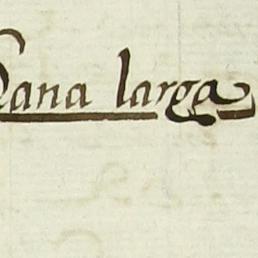 ana larga